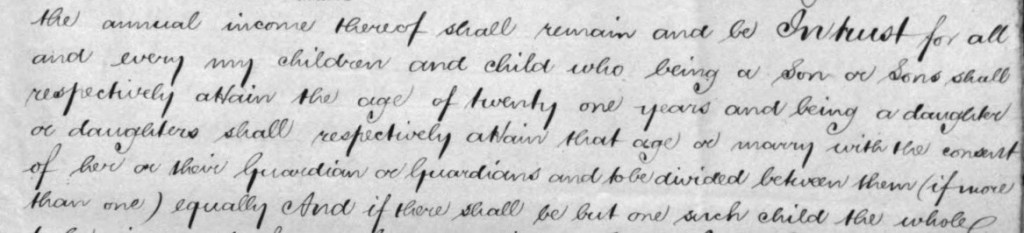 the annual income thereof shall remain and be In trust for all
and every my children and child who being a Son or Sons shall
respectively attain the age of twenty one years and being a daughter
or daughters shall respectively attain that age or marry with the consent
of her or their Guardian or Guardians and to be divided between them (if more
than one) equally And if there shall be but one such child the whole